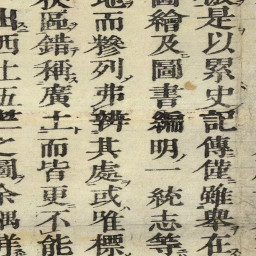 是以累史記傳僅雖舉在
圖繪及圖書編明一統志等
地而糝列弗辨其處或唯標
區錯稱廣土而皆更不能
出西土五世之圖余偶